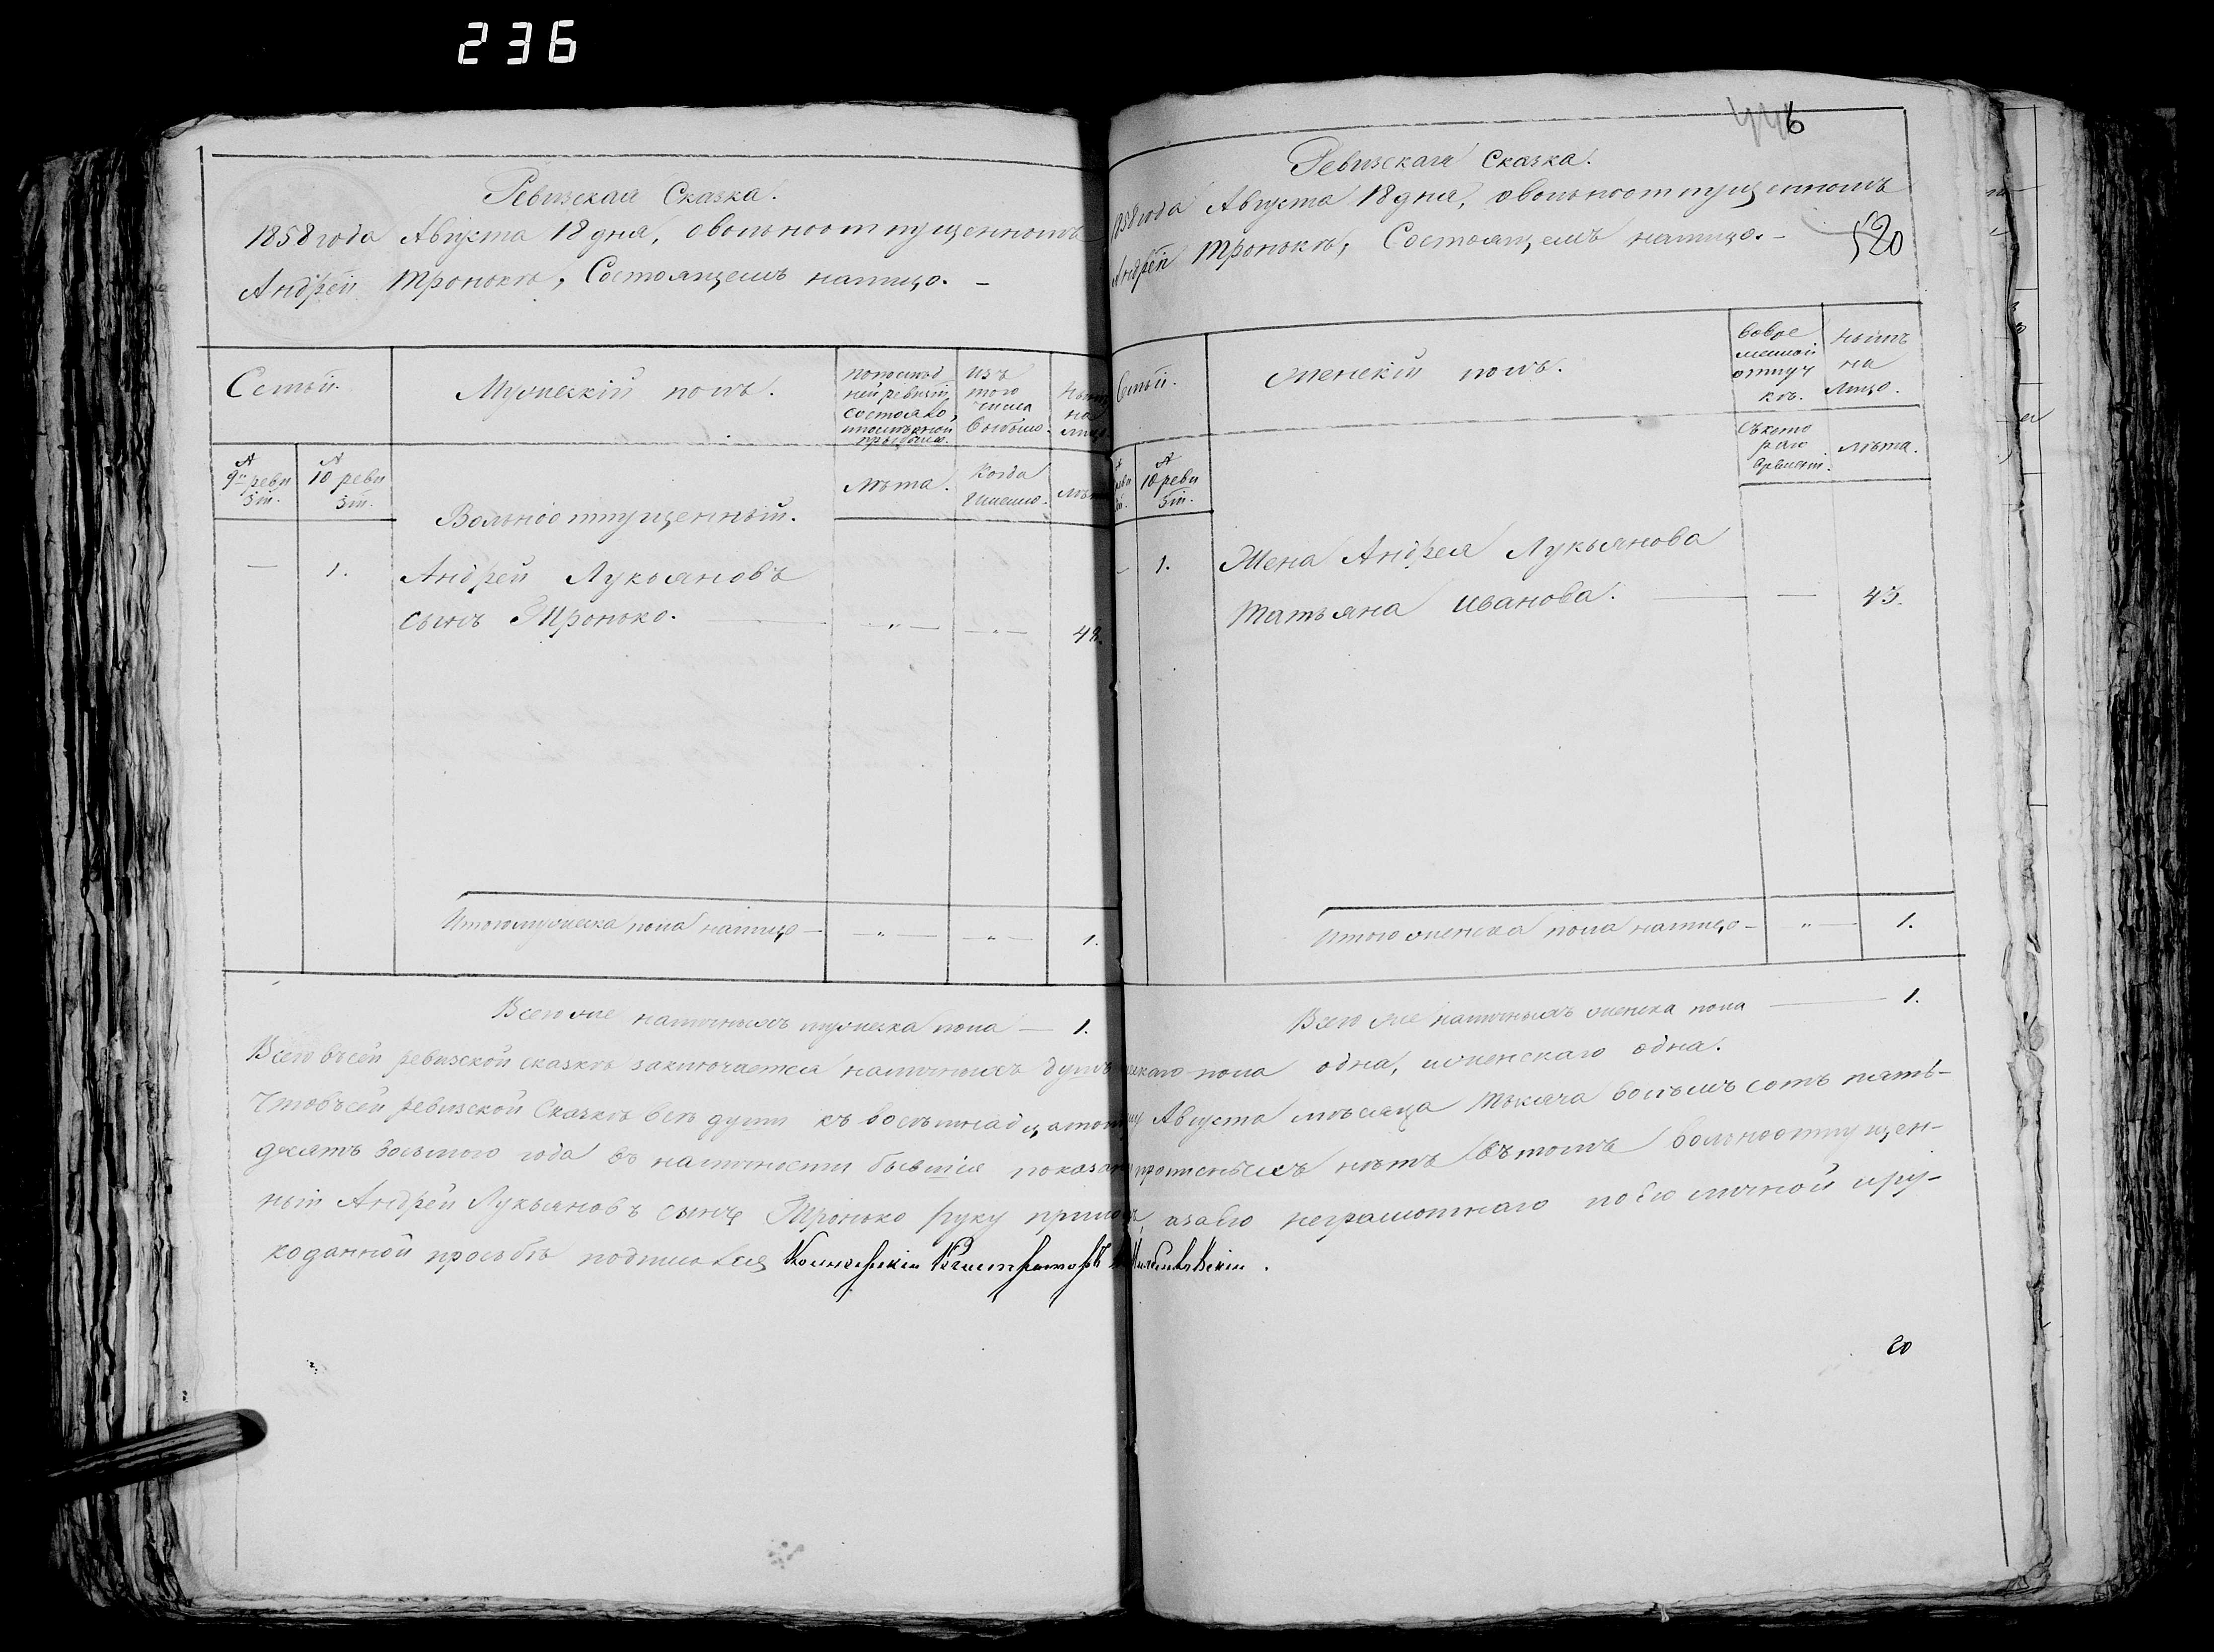 236
Ревизская Сказка.
1858 года Августа 18 дня, овольноотпущенномъ
Андреѣ Тронькѣ, Состоящемъ налицо. –
Семьи.
Мужескій полъ.
По послѣд
ней ревизіи
состояло,
прибыло.
Изъ
того
числа
выбыло.
Нынѣ
на
лицо.
№
9й реви
зіи.
№
10 реви
зіи.
Лѣта.
Когда
Именно.
Лѣта
Вольноотпущенный.
— 1. Андрей Лукьяновъ
сынъ Тронько. — „ — — „ — 48.
Итого мужеска пола налицо — — „ — — „ — 1.
Всего же наличныхъ мужеска пола — 1.
446
Ревизская Сказка.
1858 года Августа 18 дня, овольноотпущенномъ
Андреѣ Тронькѣ, Состоящемъ налицо. –
520
Семьи.
Женскій полъ.
Вовре
менной
отлуч
кѣ.
Нынѣ
на
Лицо.
10 реви
зіи.
Съ кото
раго
времени.
Лѣта.
– 1. Жена Андрея Лукьянова
Татьяна Иванова. — — 43.
Итого женска пола налицо – „ — 1.
Всего же наличныхъ женска пола — 1.
Всего въ сей ревизской сказкѣ заключается наличныхъ душъ мужескаго пола одна, и женскаго одна.
Что въ сей ревизской Сказкѣ всѣ души къ восемнадцатому Августа мѣсяца тысяча восемь сотъ пять-
десятъ восьмого года въ наличности бывшія показаны прописныхъ нѣтъ въ томъ вольноотпущен-
ный Андрей Лукьяновъ сынъ Тронько руку приложилъ, а за его неграмотнаго по его личной и ру-
коданной просьбѣ подписался Коллежскій Регистраторъ
20